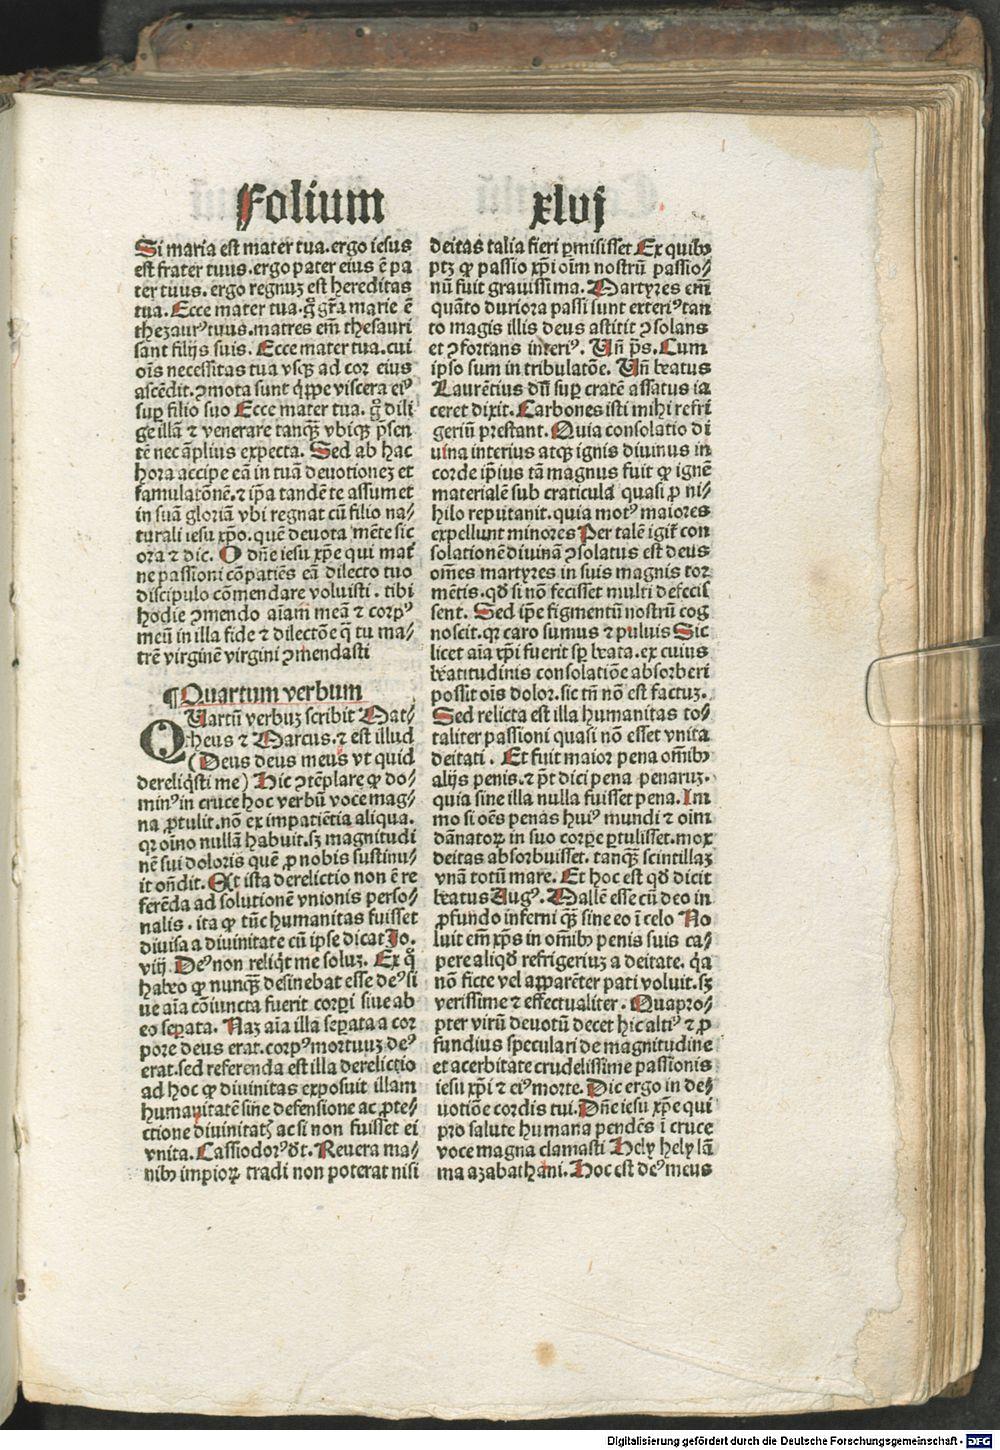 Folium xlvj
Si maria est mater tua. ergo iesus
est frater tuus. ergo pater eius ē pa
ter tuus. ergo regnuȝ est hereditas
tua. Ecce mater tua. gͦ gr̄a marie ē
thezaurꝰ tuus. matres em̄ thesauri
sant filijs suis. Ecce mater tua. cui
oīs necessitas tua vsqȝ ad cor eius
ascēdit. ꝯmota sunt qͥppe viscera eiꝰ
suꝑ filio suo Ecce mater tua. gͦ dili
ge illā ⁊ venerare tanqȝ̄ vbiqȝ p̄sen
tē nec āplius expecta. Sed ab hac
hora accipe eā in tuā deuotionez et
famulatōnē. ⁊ ip̄a tandē te assumet
in suā gloriam vbi regnat cū filio na⸗
turali iesu xp̄o. quē deuota mēte sic
ora ⁊ dic. O dn̄e iesu xp̄e qui mat̄
ne passioni cōpatiēs eā dilecto tuo
discipulo cōmendare voluisti. tibi
hodie ꝯmendo aīam meā ⁊ corpꝰ
meū in illa fide ⁊ dilectōe q̄ tu ma⸗
trē virginē virgini ꝯmendasti
¶Quartum verbum
QUartū verbuȝ scribit Mat⸗
heus ⁊ Marcus. ⁊ est illud
(Deus deus meus vt quid
dereliqͥsti me) Hic ꝯtēplare ꝙ do⸗
minꝰ in cruce hoc verbū voce mag⸗
na ꝓtulit. nō ex impatiētia aliqua.
qꝛ oīno nullā habuit. sȝ magnitudi
nē sui doloris quē ꝓ nobis sustinu⸗
it on̄dit. Est ista derelictio non ē re
ferēda ad solutionē vnionis perso⸗
nalis. ita ꝙ tūc humanitas fuisset
diuisa a diuinitate cū ipse dicat Jo.
viij. Deꝰ non reliqͥt me soluȝ. Ex qͦ
habeo ꝙ nunqȝ̄ desinebat esse deꝰ si
ue aīa cōiuncta fuerit corpi siue ab
eo seꝑata. Naȝ aīa illa seꝑata a cor
pore deus erat. corpꝰ mortuuȝ deꝰ
erat. sed referenda est illa derelictio
ad hoc ꝙ diuinitas exposuit illam
humanitatē sine defensione ac ꝓte⸗
ctione diuinitatꝭ ac si non fuisset ei
vnita. Cassiodorꝰ dt̄. Reuera ma⸗
nibꝰ impioꝝ tradi non poterat nisi
deitas talia fieri ꝑmisisset Ex quibꝰ
ptȝ ꝙ passio xp̄i oīm nostrū passio⸗
nū fuit grauissima. Martyres em̄
quāto duriora passi sunt exteriꝰ tan
to magis illis deus astitit ꝯsolans
et ꝯfortans interiꝰ. Un̄ p̄s. Cum
ipso sum in tribulatōe. Un̄ beatus
Laurētius dū suꝑ cratē assatus ia
ceret dixit. Carbones isti mihi refri
geriū prestant. Quia consolatio di
uina interius atqȝ ignis diuinus in
corde ip̄ius tā magnus fuit ꝙ ignē
materialē sub craticula quasi ꝓ ni⸗
hilo reputauit. quia motꝰ maiores
expellunt minores Per talē igit̄ con
solationē diuinā ꝯsolatus est deus
om̄es martyres in suis magnis tor
mētis. qd̄ si nō fecisset multi defecis
sent. Sed ip̄e figmentū nostrū cog
noscit. qꝛ caro sumus ⁊ puluis Sic
licet aīa xp̄i fuerit sp̄ beata. ex cuius
beatitudinis consolatiōe absorberi
possit oīs dolor. sic tn̄ nō est factuȝ.
Sed relicta est illa humanitas to⸗
taliter passioni quasi nō esset vnita
deitati. Et fuit maior pena om̄ibꝰ
alijs penis. ⁊ pōt dici pena penaruȝ.
quia sine illa nulla fuisset pena. Im
mo si oēs penas huiꝰ mundi ⁊ oīm
dānatoꝝ in suo corꝑe ꝑtulisset. mox
deitas absorbuisset. tanqȝ̄ scintillaȝ
vnā totū mare. Et hoc est qd̄ dicit
beatus Augꝰ. Mallē esse cū deo in
ꝓfundo inferni qȝ̄ sine eo ī celo No
luit em̄ xp̄s in om̄ibꝰ penis suis ca⸗
pere aliqd̄ refrigeriuȝ a deitate. qͥa
nō ficte vel apparēter pati voluit. sȝ
verissime ⁊ effectualiter. Quapro⸗
pter virū deuotū decet hic altiꝰ ⁊ ꝓ
fundius speculari de magnitudine
et acerbitate crudelissime passionis
iesu xp̄i ⁊ eiꝰ morte. Dic ergo in de⸗
uotiōe cordis tui. Dn̄e iesu xp̄e qui
pro salute humana pendēs ī cruce
voce magna clamasti Hely hely lā
ma azabathani. Hoc est deꝰ meus
Digitalisierung gefördert durch die Deutsche Forschungsgemeinschaft - DFG